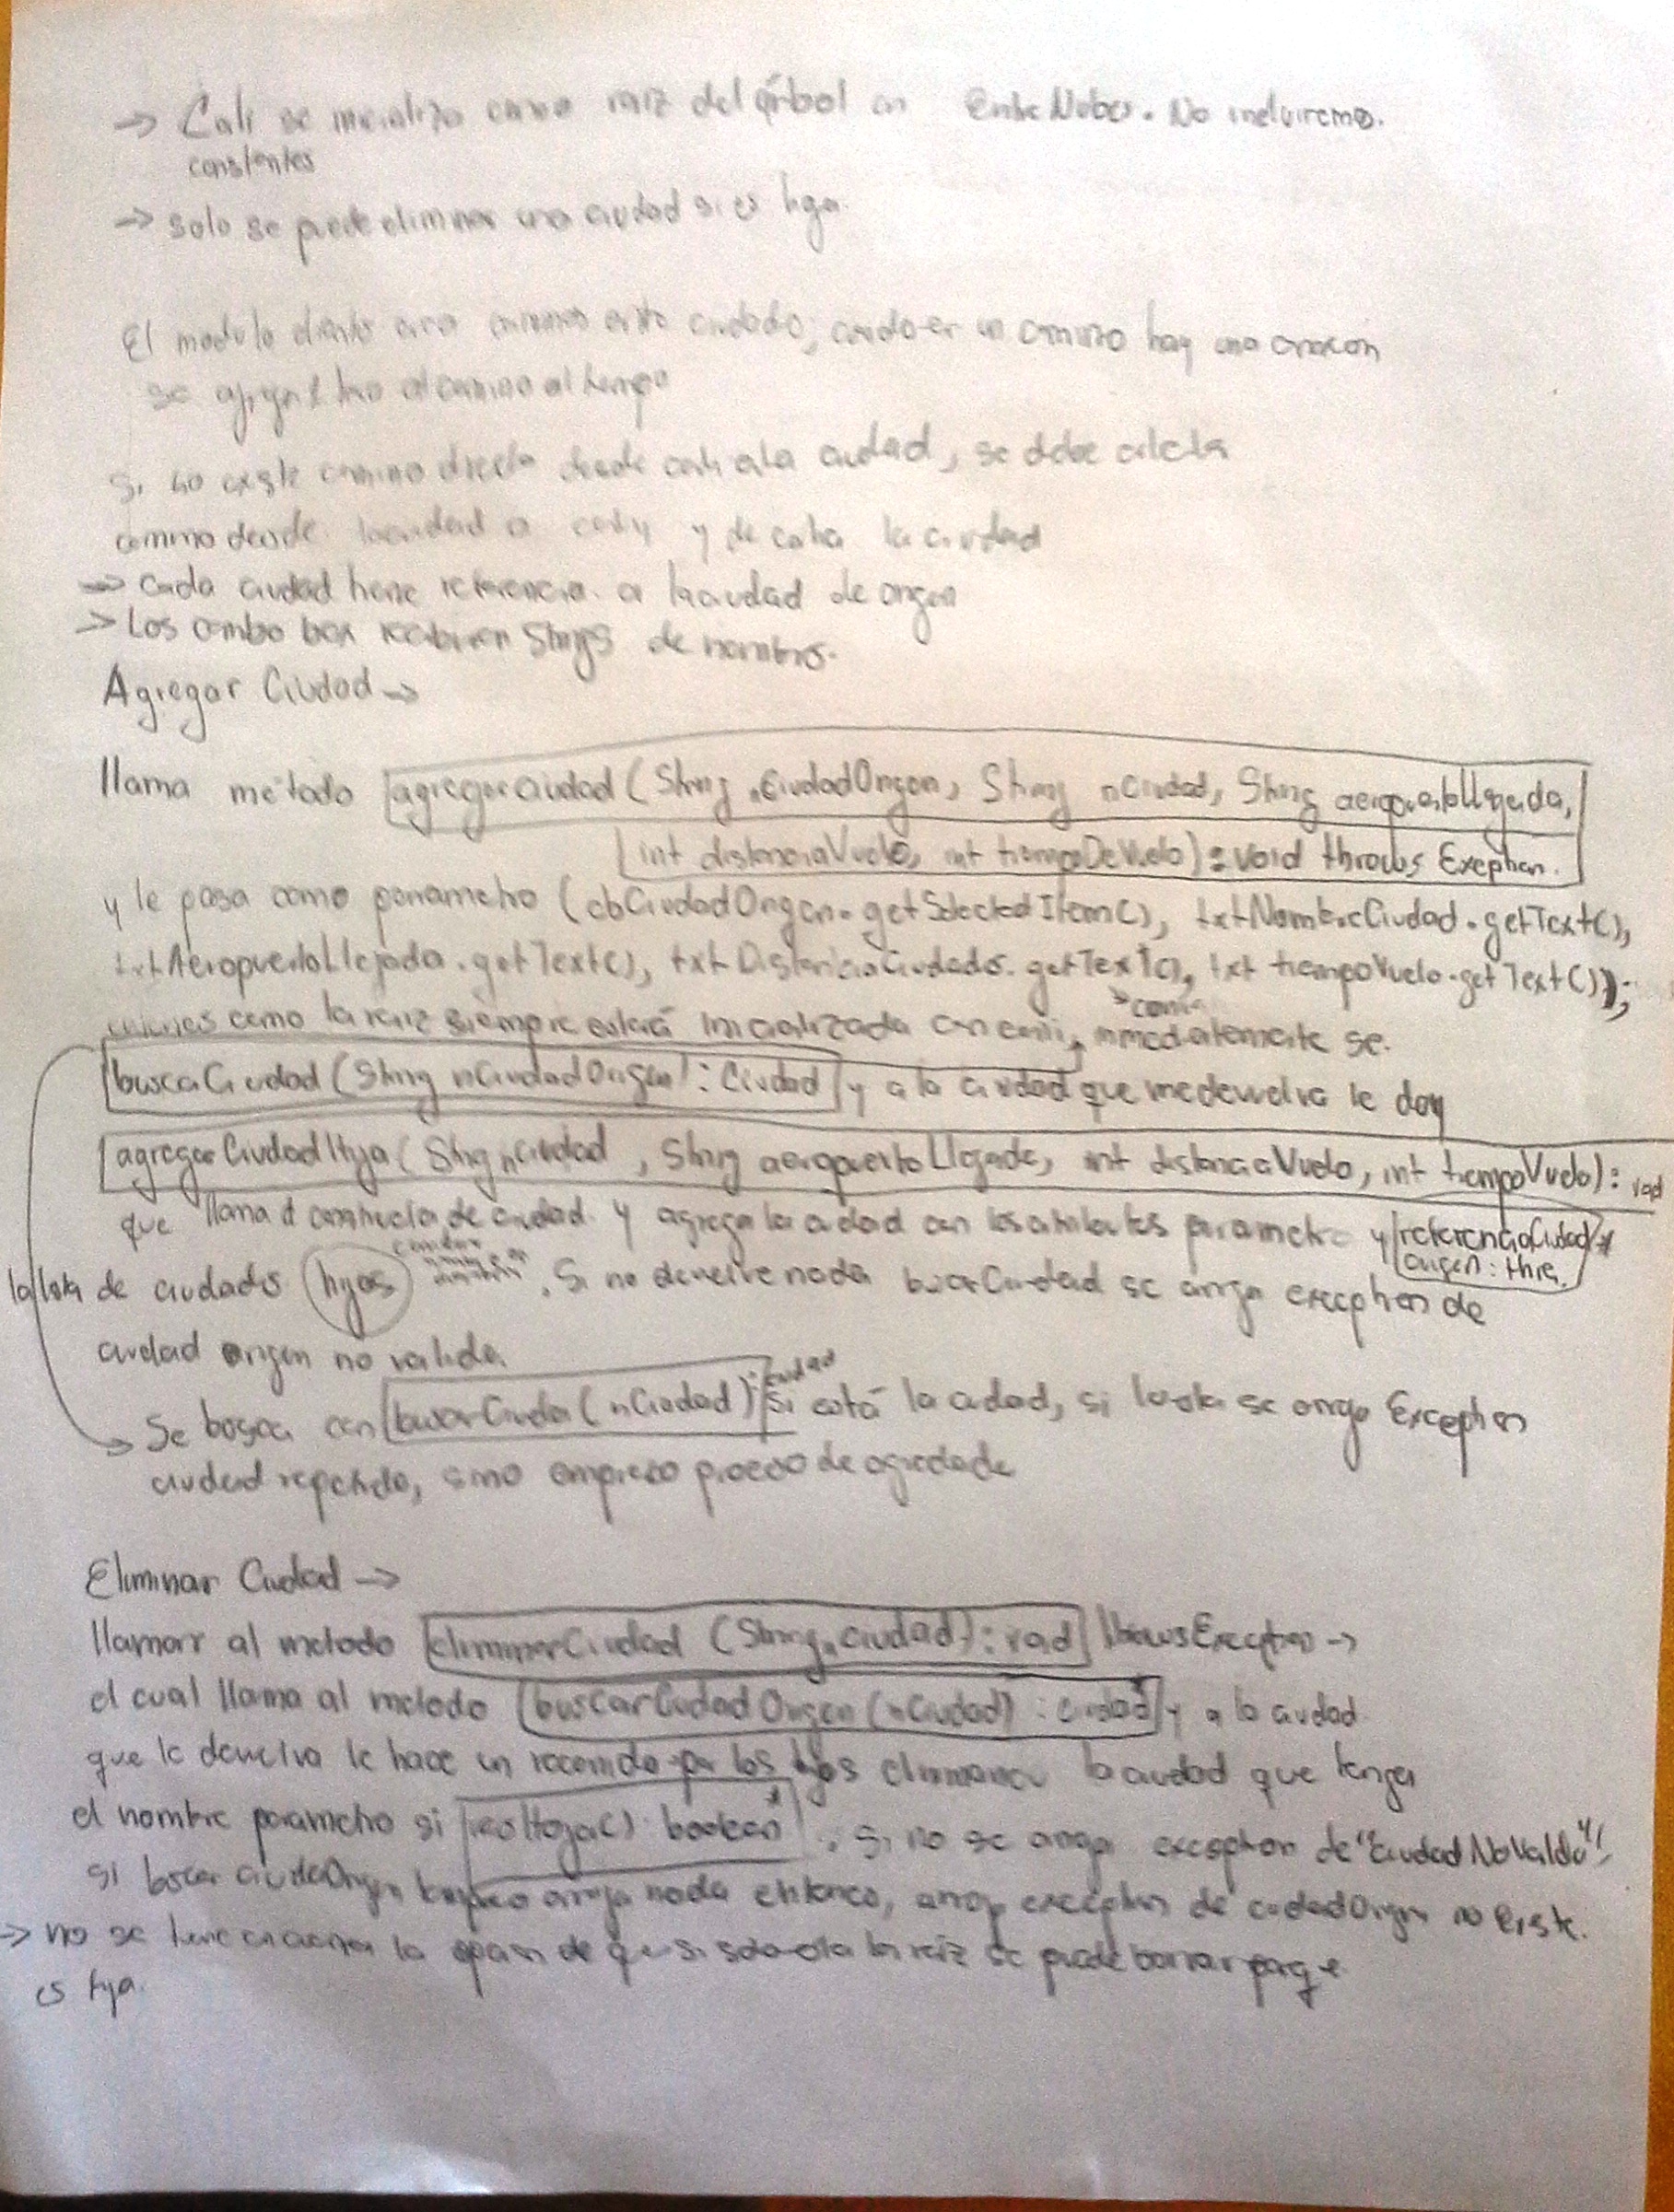 → Cali se inicializa como raiz del árbol en EntreNubes. No incluiremos.
constantes
→ solo se puede eliminar una ciudad si es hoja.
El modulo ciudades; en un camino hay una
se al camino el tiempo
Si no existe camino directo desde cali a la ciudad, se debe
camino desde la ciudad a cali y de cali a la ciudad
→ cada ciudad tiene referencia a la ciudad de origen
→ Los combo box recibiran Strings de nombres.
Agregar Ciudad →
llama método agregarCiudad (String nCiudadOrigen, String nCiudad, String aeropuertoLlegada,
int distanciaVuelo, int tiempoDeVuelo) : void throws Exception.
y le pasa como parametro (cbCiudadOrigen.getSelectedItem(), txtNombreCiudad.getText(),
txtAeropuertoLlegada.getText(), txtDistanciaCiudades.getText(), txt tiempoVuelo.getText());
entonces como la raiz siempre estará inicializada con cali, inmediatemente se.
buscaCiudad (String nCiudadOrigen) : Ciudad y a la ciudad que me devuelva le doy
agregarCiudadHija (String nCiudad, String aeropuertoLlegada, int distanciaVuelo, int tiempoVuelo) : void
que llama a constructor de ciudad y agrega la ciudad con los atributos parametro y referenciaCiudad
origen : this.
la lista de ciudades hijas. Si no devuelve nada buscarCiudad se arroja exception de
ciudad origen no valida.
Se busca con buscarCiudad (nCiudad) : ciudad si está la ciudad, si lo esta se arroja Exception
ciudad repetida, sino empiezo proceso de agregado
Eliminar Ciudad →
llamar al metodo eliminarCiudad (String nciudad) : void throws Exception →
el cual llama al metodo buscarCiudadOrigen (nCiudad) : ciudad y a la ciudad
que le devuelva le hace un recorrido por los hijos eliminando la ciudad que tenga
el nombre parametro si esHoja() : boolean, si no se arroja exception de "CiudadNoValida",
si buscar ciudadOrigen arroja nada entonces, arroja exception de ciudadOrigen no Existe.
→ no se tiene en cuenta la opcion de que si solo esta la raiz se puede borrar porque
es hoja.